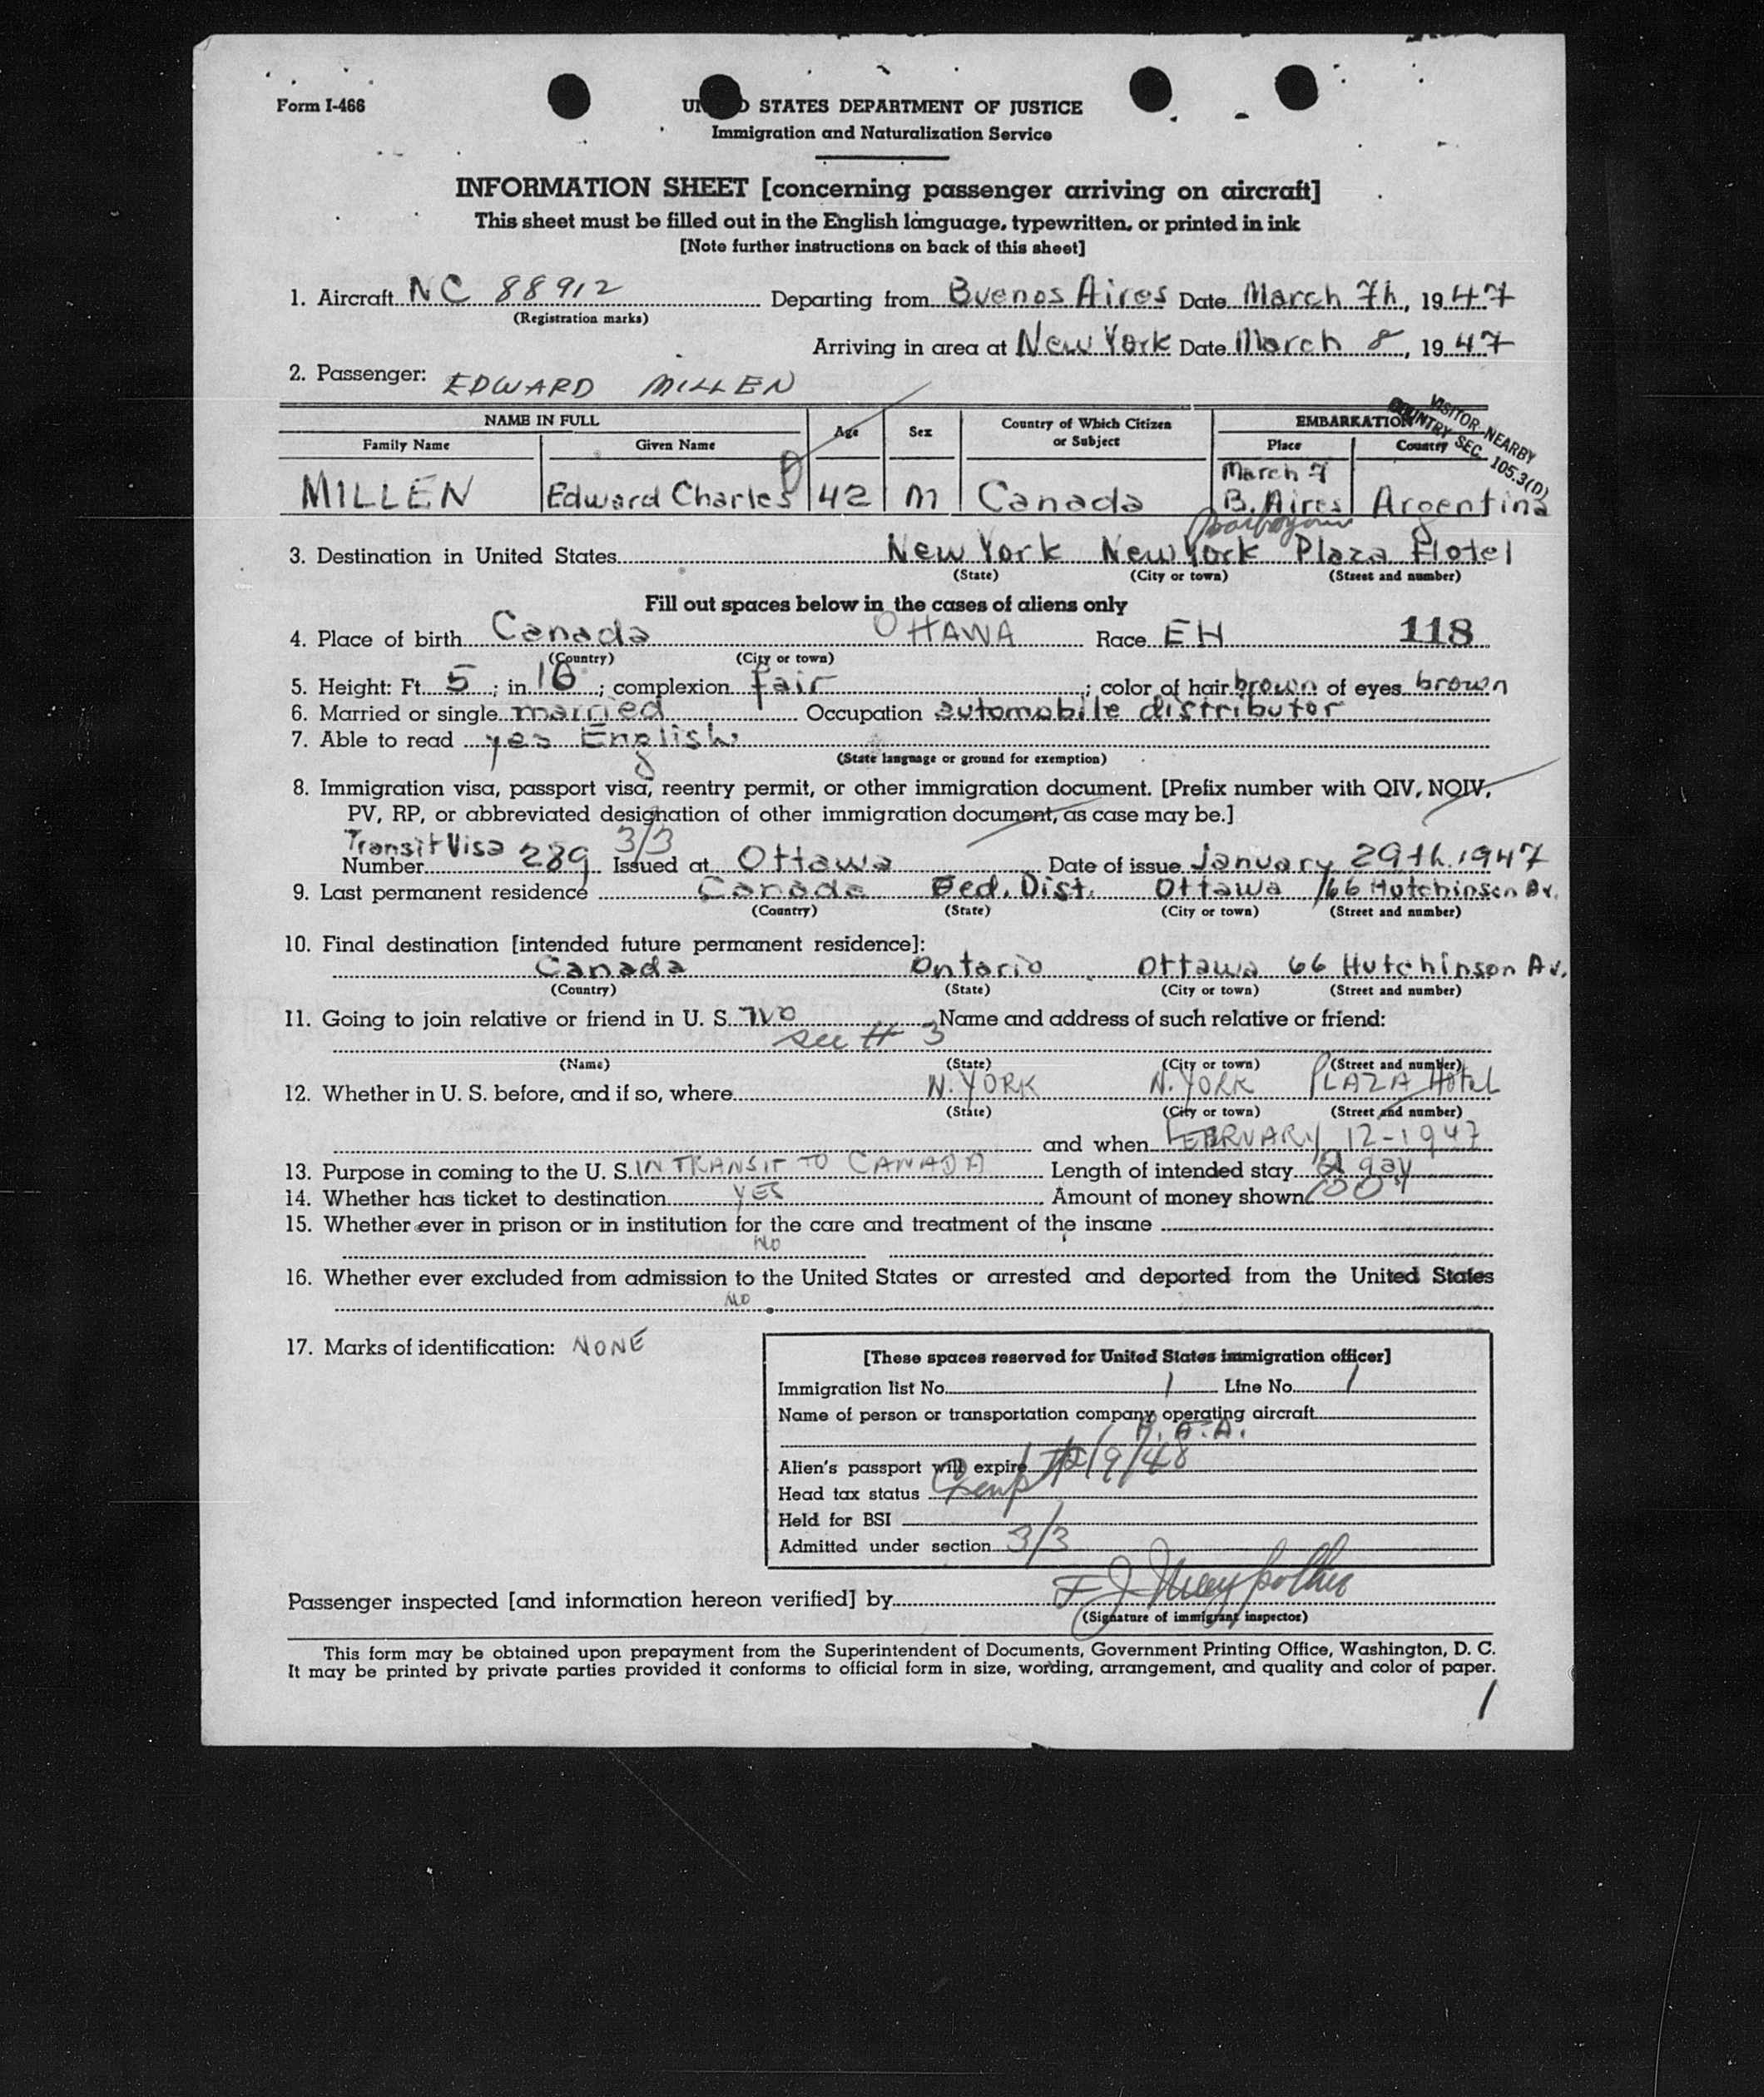 Form I-466
UN D STATES DEPARTMENT OF JUSTICE
Immigration and Naturalization Service
INFORMATION SHEET [concerning passenger arriving on aircraft]
This sheet must be filled out in the English language, typewritten, or printed in ink
[Note further instructions on back of this sheet]
1. Aircraft NC 88912 Departing from Buenos Aires Date March 7h, 1947
(Registration marks)
Arriving in area at New York Date March 8, 1947
2. Passenger: EDWARD MILLEN
VISITOR-NEARBY
COUNTRY SEC. 105.3(D)
NAME IN FULL Age Sex Country of Which Citizen or Subject EMBARKATION
Family Name Given Name Place Country
March 7
MILLEN Edward Charles 42 M Canada B. Aires Argentina
3. Destination in United States New York New York Plaza Hotel
(State) (City or town) (Street and number)
Fill out spaces below in the cases of aliens only
4. Place of birth Canada OTTAWA Race EH 118
(Country) (City or town)
5. Height: Ft. 5; in. 10; complexion fair; color of hair brown of eyes brown
6. Married or single married Occupation automobile distributor
7. Able to read yes English
(State language or ground for exemption)
8. Immigration visa, passport visa, reentry permit, or other immigration document. [Prefix number with QIV, NQIV,
PV, RP, or abbreviated designation of other immigration document, as case may be.]
Transit Visa 3/3
Number 289 Issued at Ottawa Date of issue January 29th 1947
9. Last permanent residence Canada Fed. Dist. Ottawa 66 Hutchinson Av.
(Country) (State) (City or town) (Street and number)
10. Final destination [intended future permanent residence]:
Canada Ontario Ottawa 66 Hutchinson Av.
(Country) (State) (City or town) (Street and number)
11. Going to join relative or friend in U. S. NO Name and address of such relative or friend:
see # 3
(Name) (State) (City or town) (Street and number)
12. Whether in U. S. before, and if so, where N. YORK N. YORK PLAZA Hotel
(State) (City or town) (Street and number)
and when FEBRUARY 12-1947
13. Purpose in coming to the U. S. IN TRANSIT TO CANADA Length of intended stay day
14. Whether has ticket to destination YES Amount of money shown 100
15. Whether ever in prison or in institution for the care and treatment of the insane
NO
16. Whether ever excluded from admission to the United States or arrested and deported from the United States
NO
17. Marks of identification: NONE
[These spaces reserved for United States immigration officer]
Immigration list No. 1 Line No. 1
Name of person or transportation company operating aircraft
Alien's passport will expire /9/48
Head tax status
Held for BSI
Admitted under section 3/3
Passenger inspected [and information hereon verified] by
(Signature of immigrant inspector)
This form may be obtained upon prepayment from the Superintendent of Documents, Government Printing Office, Washington, D. C.
It may be printed by private parties provided it conforms to official form in size, wording, arrangement, and quality and color of paper.
1